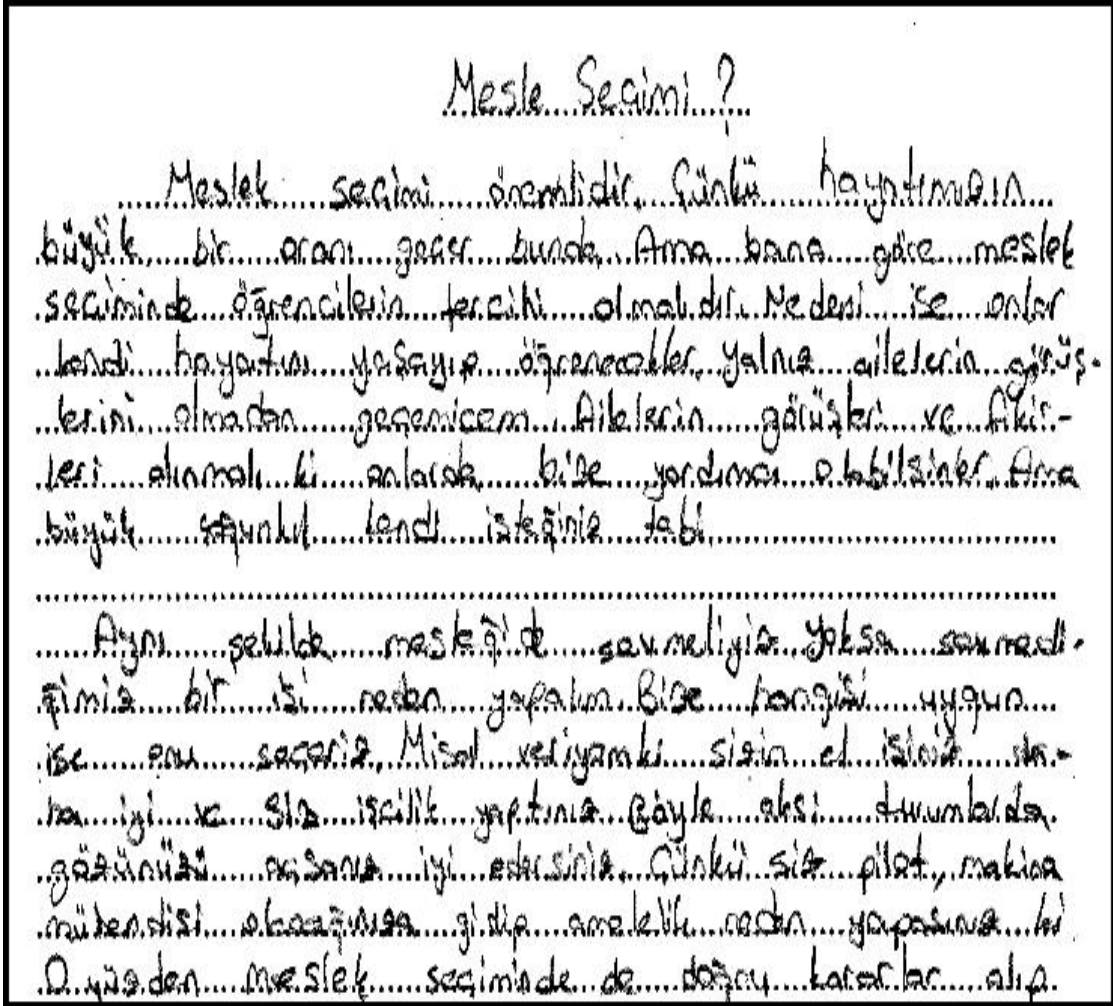 Mesle Seçimi ?
Meslek seçimi önemlidir. Çünkü hayatımızın
büyük bir oranı geçer bunda. Ama bana göre meslek
seçiminde öğrencilerin tercihi olmalıdır. Nedeni ise onlar
kendi hayatını yaşayıp öğrenecekler. Yalnız ailelerin görüş-
lerini almadan geçemicem. Ailelerin görüşleri ve fikir-
leri alınmalı ki onlarda bize yardımcı olabilsinler. Ama
büyük kendi isteğiniz tabi.
Aynı şekilde mesleğide sevmeliyiz. Yoksa sevmedi-
ğimiz bir işi neden yapalım. Bize hangisi uygun
ise onu seçeriz. Misal veriyamki sizin el işiniz da-
ha iyi ve siz işcilik yaptınız. Böyle aksi durumlarda
gözünüzü açsanız iyi edersiniz. Çünkü siz pilot, makina
mühendisi gidip amelelik neden yapasınız ki
O yüzden meslek seçiminde de doğru kararlar alıp